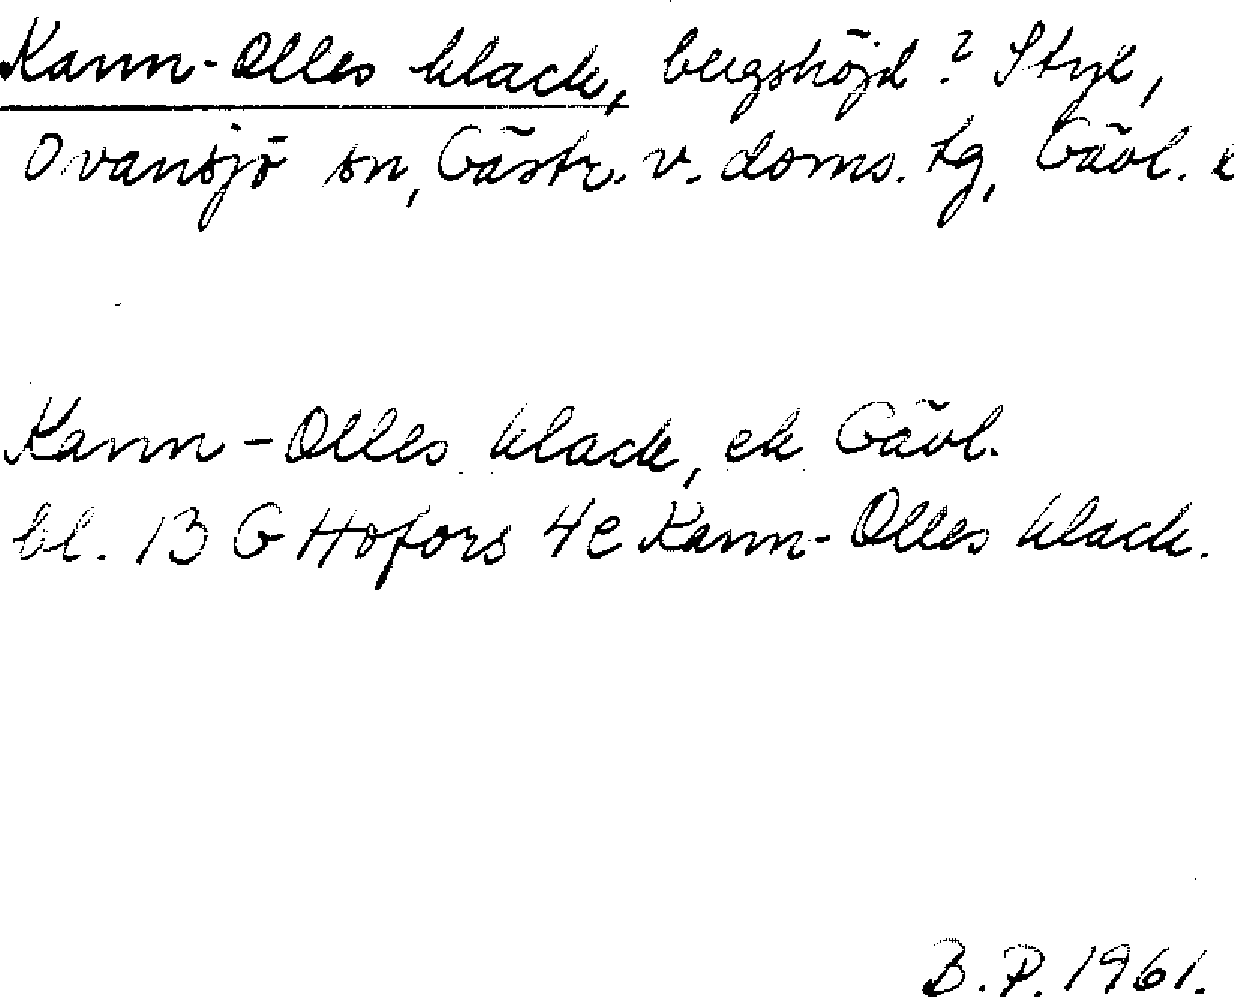 Kann-Olles klack, bergshöjd? Styl,
Ovansjö sn, Gästr. v. doms. tg, Gävl.
Kann-Olles klack, ek Gävl.
bl. 13 G Hofors 4e Kann-Olles klack.
B.P. 1961.